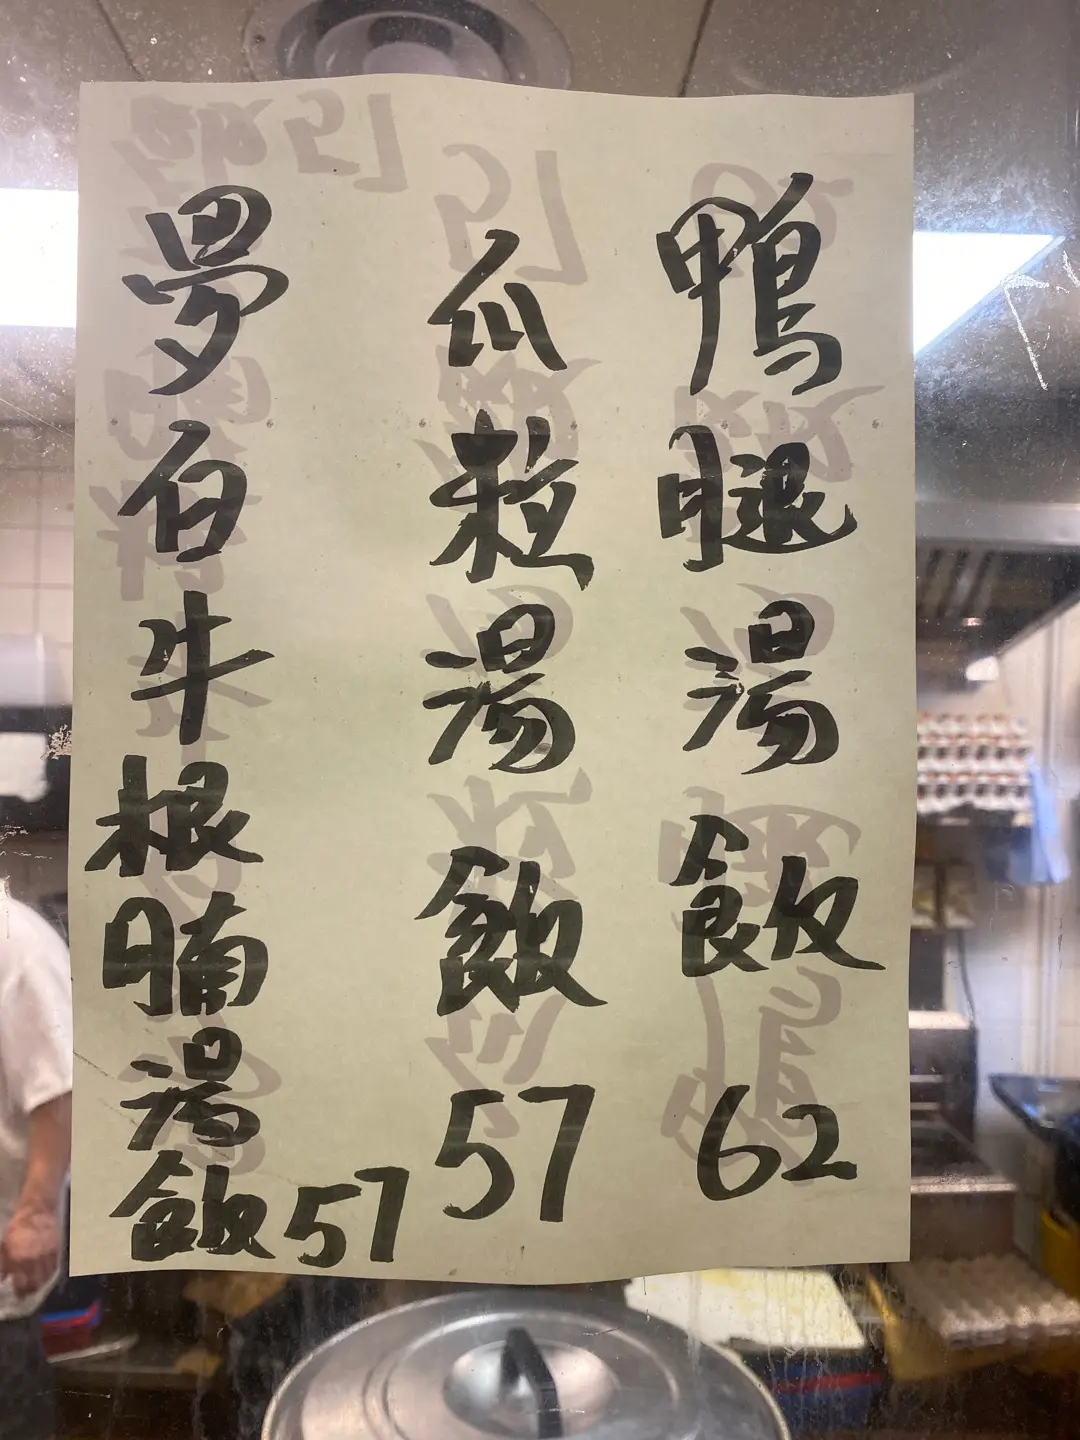 鴨腿湯飯 62
瓜粒湯飯 57
夢白牛根腩湯飯 57